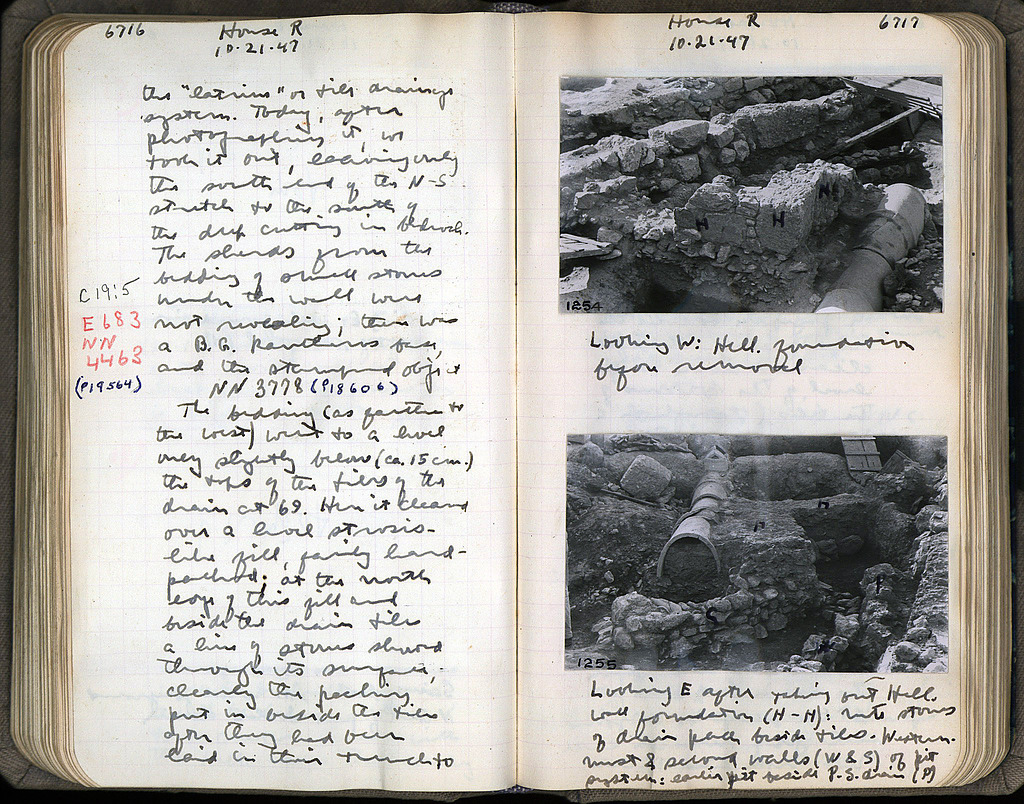 6716
House R
10-21-47
the "latrine" or tile drainage
system. Today, after
photographing it, we
took it out, leaving only
the south end of the N-S
stretch to the south of
the deep cutting in bedrock.
The sherds from the
bedding of small stones
under the wall were
not revealing; there was
a B.G. kantharos base,
and the stamped object
NN 3778 (P18606)
C 19:5
E 683
NN
4463
(P19564)
The bedding (as farther to
the west) went to a level
only slightly below (ca. 15 cm.)
the tops of the tiles of the
drain at 69. Here it cleared
over a level strosis-
like fill, fairly hard-
packed; at the north
edge of this fill and
beside the drain tiles
a line of stones showed
through its surface,
clearly the packing
put in beside the tiles
after they had been
laid in their trench to
House R
6717
10-21-47
H
H
1254
Looking W: Hell. foundation
before removal
H
H
S
P
1255
Looking E after taking out Hell.
wall foundation (H-H): note stones
of drain pack beside tiles. Western-
most & second walls (W & S) of pit
system: earlier pit beside P.S. drain (P)